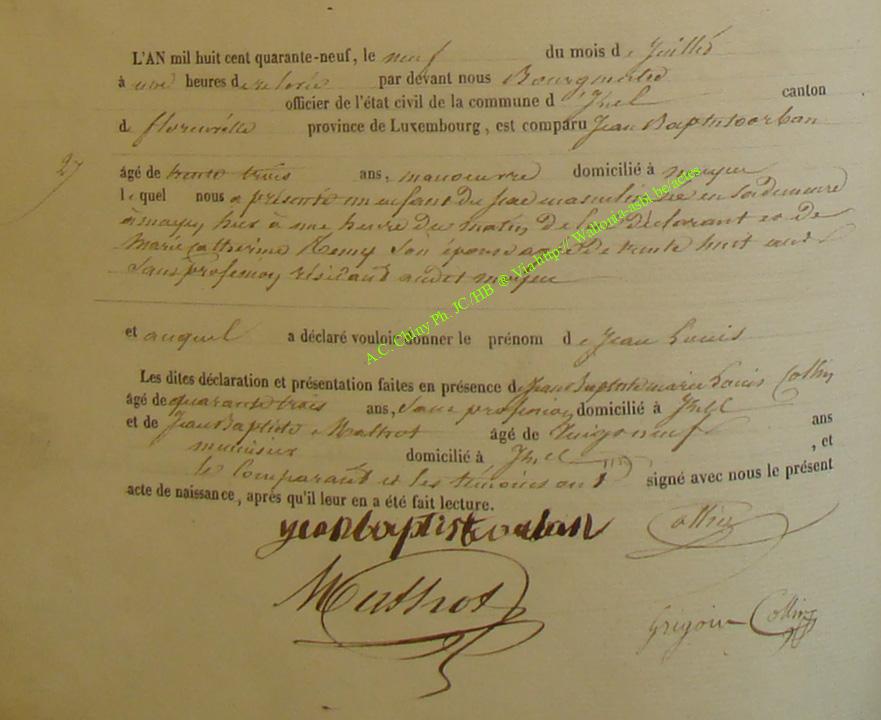 L'AN mil huit cent quarante-neuf, le neuf du mois de Juillet
à une heures de relevée par devant nous Bourgmestre
officier de l'état civil de la commune d'Izel canton
de florenville province de Luxembourg, est comparu Jean Baptiste orban
27
âgé de trente trois ans, manoeuvre domicilié à moyen
lequel nous a présenté un enfant du sexe masculin, né en sa demeure
à moyen, hier à une heure du matin, de lui Déclarant et de
Marie Catherine Remy son épouse agée De trente huit ans
Sans profession, résidant audit moyen
et auquel a déclaré vouloir donner le prénom de Jean Louis
Les dites déclaration et présentation faites en présence de Jean Baptiste marie Louis Collin
âgé de quarante trois ans, Sans profession, domicilié à Izel
et de Jean Baptiste Mathot âgé de vingt neuf ans
menuisier domicilié à Izel, et
le Comparant et les témoins ont signé avec nous le présent
acte de naissance, après qu'il leur en a été fait lecture.
jean baptiste orban Collin
Mathot
Grégoire Collin
A.C. Chiny Ph. JC/HB @ Via http:// Wallonia-asbl.be/actes